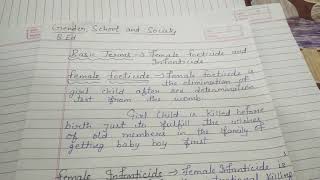 Gender, School and Society
B.Ed
Basic Terms → Female foeticide and
Infanticide
Female foeticide → Female foeticide
is the elimination of
girl child after sex determination
test from the womb
Girl Child is killed before
birth just to fulfill the wishes
of old members in the family of
getting baby boy first
Female Infanticide → Female Infanticide is
intentional killing